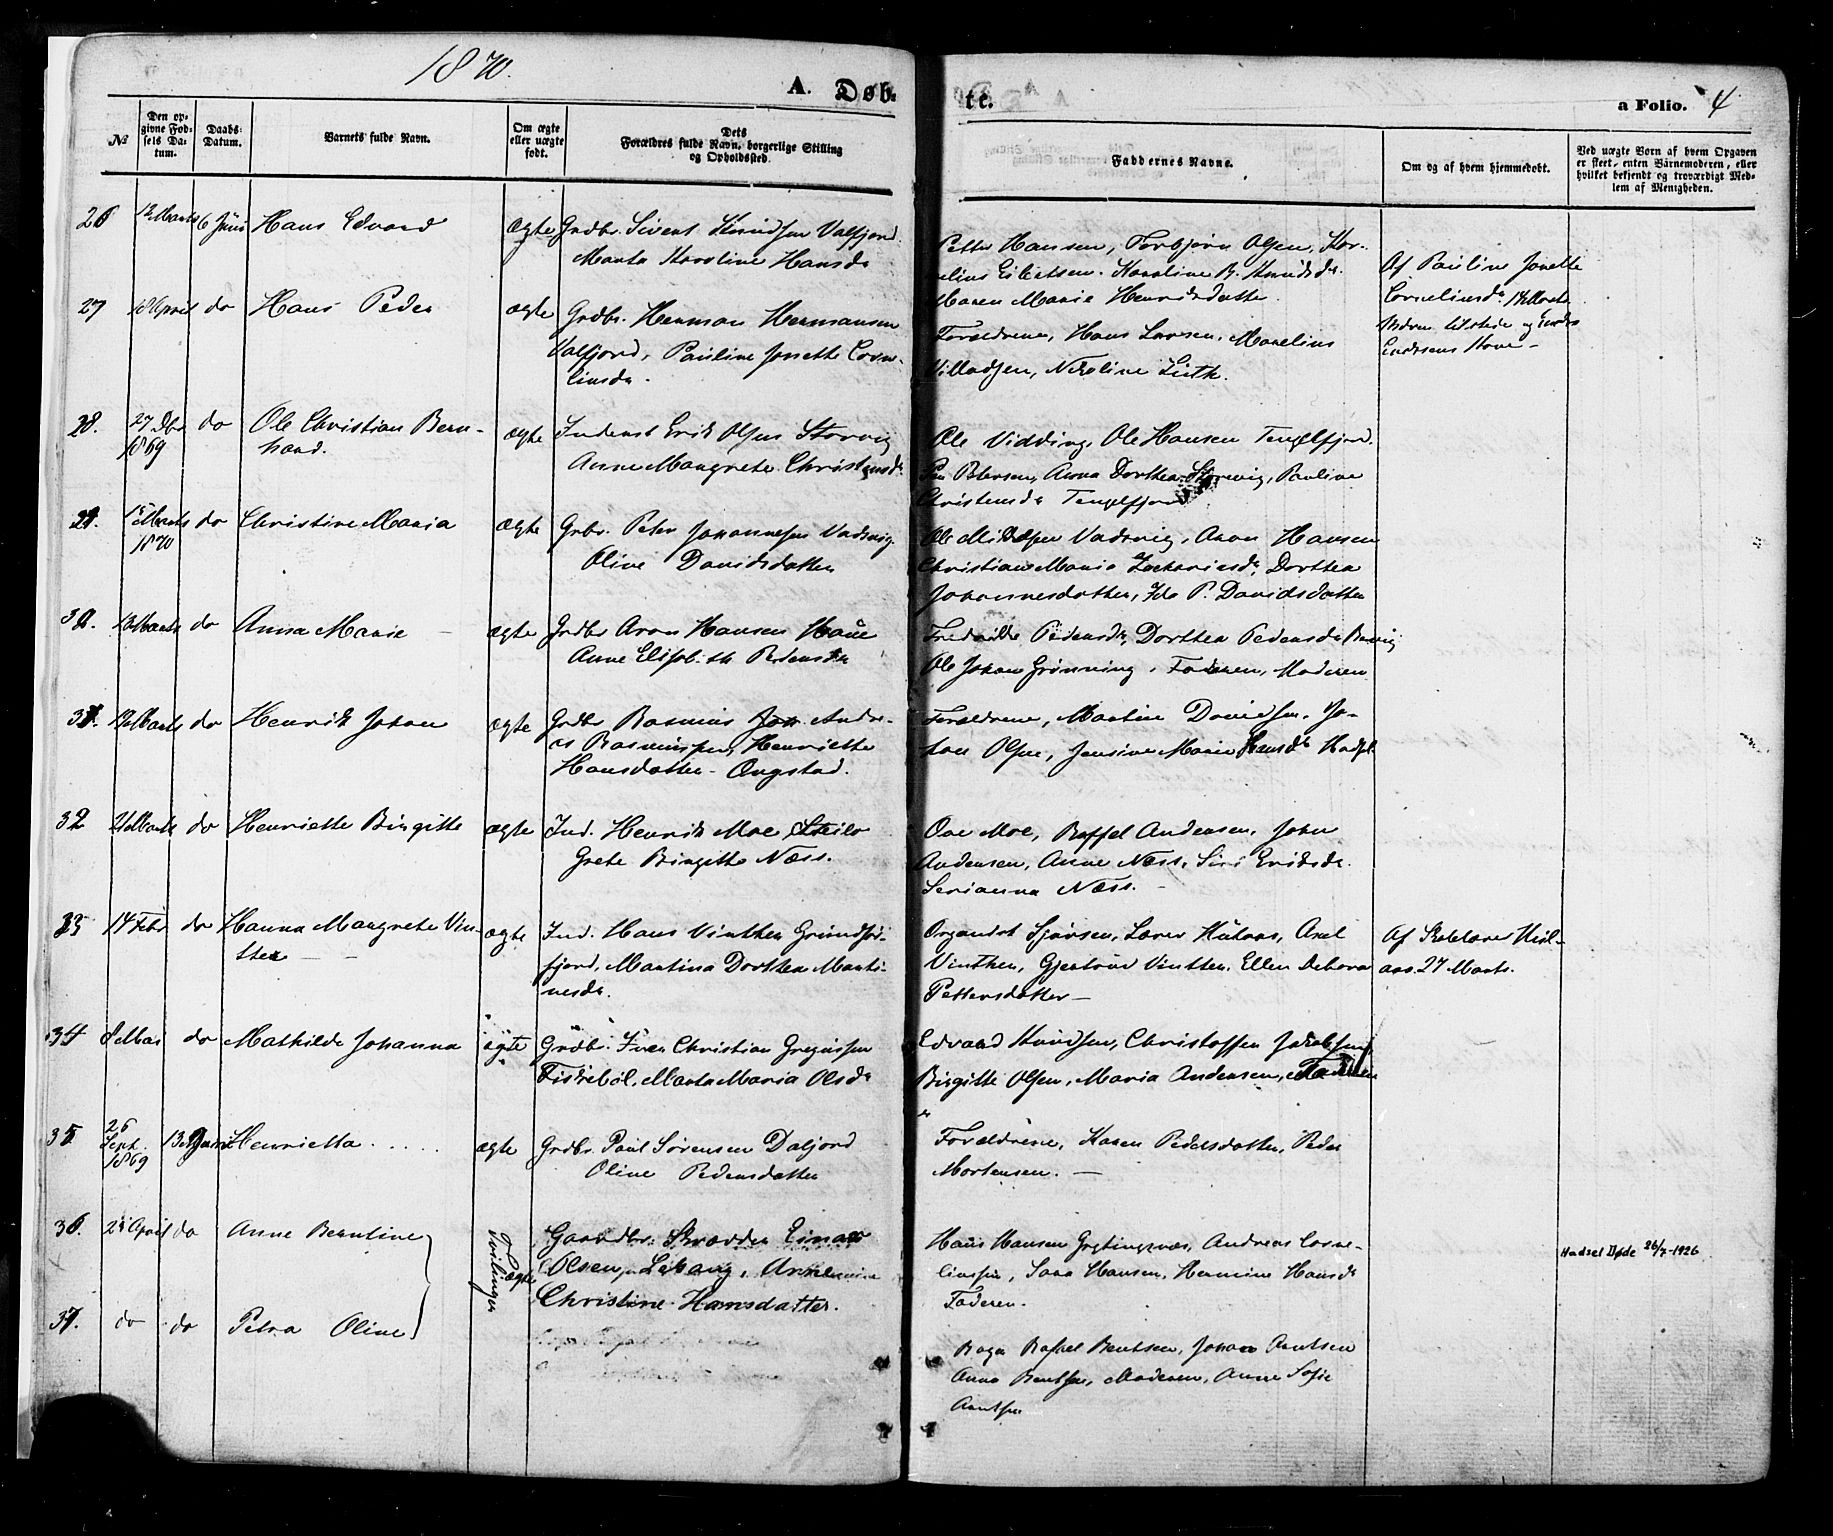 1870.
A. Døb-
te.
a Folio. 4
№
Den op-
givne Fød-
sels Da-
tum.
Daabs-
Datum.
Barnets fulde Navn.
Om ægte
eller uægte
født.
Dets
Forældres fulde Navn, borgerlige Stilling
og Opholdssted.
Faddernes Navne.
Om og af hvem hjemmedøbt.
Ved uægte Børn af hvem Opgaven
er skeet, enten Barnemoderen, eller
hvilket bekjendt og troværdigt Med-
lem af Menigheden.
26 12 Marts 6 Juni Hans Edvard ægte Grdbr. Sivert Knudsen Valfjord.
Marta Karoline Hansd
Petter Hansen, Torbjørn Olsen, Kor-
nelius Eilertsen. Karoline B. Knudsd.
Maren Marie Henriksdatter.
27 18 April do Hans Peder ægte Grdbr. Herman Hermansen
Valfjord, Pauline Jonette Corne-
liusd.
Forældrene, Hans Larsen, Marelius
Villadsen, Nikoline Lind.
Af Pauline Jonette
Corneliusd.
28. 27 Dbr
1869 do Ole Christian Bern-
hard. ægte Inderst Erik Olsen Storvig
Anne Margrete Christensd
Ole Vidding, Ole Hansen Tengelfjord.
Petersen, Anna Dorthea Storvig, Pauline
Christensd Tengelfjord
29. 15 Marts
1870 do Christine Maria ægte Grbr. Peter Johannesen Vadsvig
Olive Davidsdatter
Ole Mikkelsen Vadsvig, Aron Hansen
Christiane Marie Zachariasd, Dorthea
Johannesdatter, Ida P. Davidsdatter
30. 13 Marts do Anna Marie ægte Grdbr Aron Hansen
Anne Elisabeth Pedersd
Fredrikke Pedersd, Dorthea Pedersd
Ole Johan Grønning, Faderen, Moderen
31. 19 Marts do Henrik Johan ægte Grdbr Rasmus Andre-
as Rasmussen, Henriette
Hansdatter - Ongstad.
Forældrene, Martin Davidsen, Jo-
han Olsen, Jensine Marie Hansd Hadsel
32 21 Marts do Henriette Birgitte ægte Ind. Henrik Moe, Steilo
Grete Birgitte Næss.
Ove Moe, Raffel Andersen, Johan
Andersen, Anne Næss, Siri Eriksd.
Serianna Næss.
33 14 Febr do Hanna Margrete Vin-
ther ægte Ind. Hans Vinther Grundfør-
fjord, Martina Dorthea Marti-
nusd.
Organist Sjørsen, Lærer Axel
Vinther, Gjertrud Vinther, Ellen Debora
Pettersdatter
Af Skolelærer
27 Marts.
34 8 Mai do Mathilde Johanna ægte Grdbr. Iver Christian Gregusen
Fiskebøl, Marta Maria Olsd
Edvard Knudsen, Christoffer Jakobsen,
Birgitte Olsen, Maria Andersen, Faderen
35 26
Sept.
1869 13 Juni Henrietta ægte Grdbr. Paul Sørensen Daljord
Oline Pedersdatter
Forældrene, Karen Pedersdatter, Peder
Mortensen.
36. 28 April do Anne Berntine
Tvillinger ægte Gaardbr. Skrædder Einar
Olsen, Anne
Christine Hansdatter.
Hans Hansen Grytingsvær, Andreas Corne-
liussen, Sara Hansen, Hermine Hansd
Faderen.
Hadsel Døde 26/7-1926
37. do do Petra Oline
Raffel Bentsen, Johan Arntsen
Anna Bentsen, Moderen, Anne Sofie
Arntsen